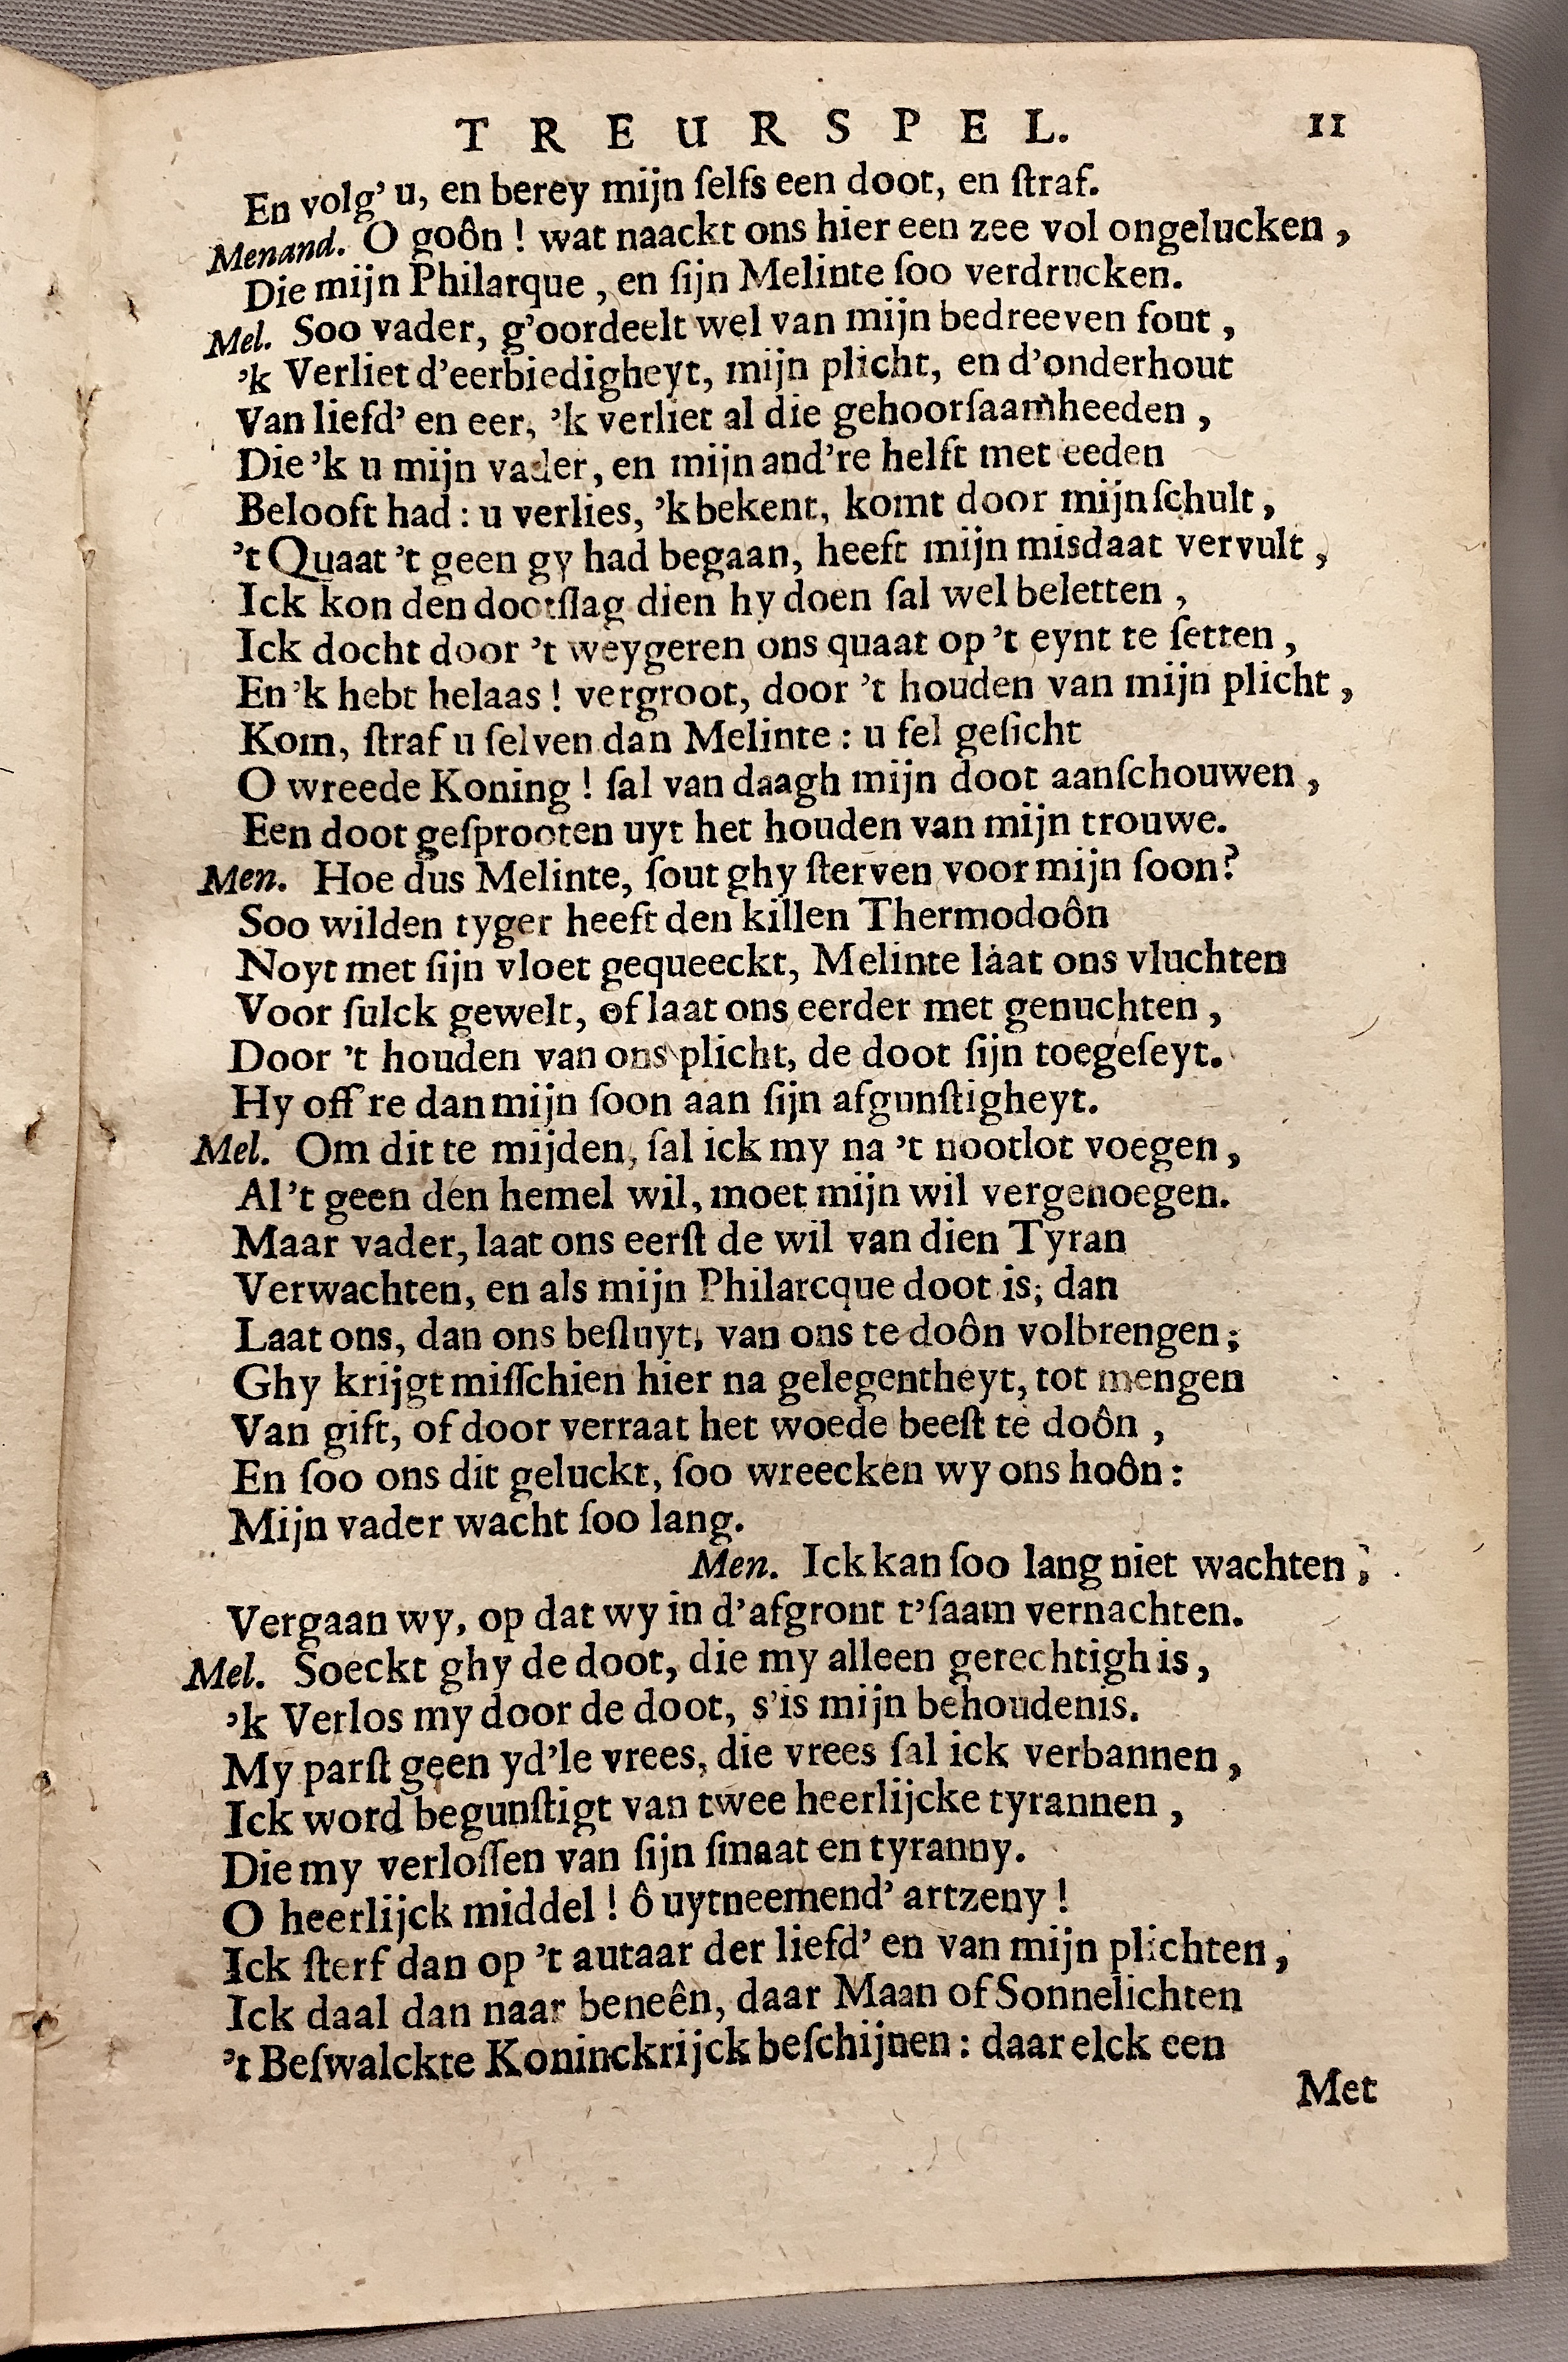 TREURSPEL. 11
En volg' u, en berey mijn ſelfs een doot, en ſtraf.
Menand. O goôn ! wat naackt ons hier een zee vol ongelucken ,
Die mijn Philarque , en ſijn Melinte ſoo verdrucken.
Mel. Soo vader, g'oordeelt wel van mijn bedreeven font ,
'k Verliet d'eerbiedigheyt, mijn plicht, en d'onderhout
Van liefd' en eer, 'k verliet al die gehoorſaamheeden ,
Die 'k u mijn vader, en mijn and're helft met eeden
Belooft had : u verlies, 'k bekent, komt door mijn ſchult ,
't Quaat 't geen gy had begaan, heeft mijn misdaat vervult ,
Ick kon den dootſlag dien hy doen ſal wel beletten ,
Ick docht door 't weygeren ons quaat op 't eynt te ſetten ,
En 'k hebt helaas ! vergroot, door 't houden van mijn plicht ,
Kom, ſtraf u ſelven dan Melinte : u fel geſicht
O wreede Koning ! ſal van daagh mijn doot aanſchouwen ,
Een doot geſprooten uyt het houden van mijn trouwe.
Men. Hoe dus Melinte, ſout ghy ſterven voor mijn ſoon?
Soo wilden tyger heeft den killen Thermodoôn
Noyt met ſijn vloet gequeeckt, Melinte laat ons vluchten
Voor ſulck gewelt, of laat ons eerder met genuchten ,
Door 't houden van ons plicht, de doot ſijn toegeſeyt.
Hy off're dan mijn ſoon aan ſijn afgunſtigheyt.
Mel. Om dit te mijden, ſal ick my na 't nootlot voegen ,
Al 't geen den hemel wil, moet mijn wil vergenoegen.
Maar vader, laat ons eerſt de wil van dien Tyran
Verwachten, en als mijn Philarcque doot is; dan
Laat ons, dan ons beſluyt, van ons te doôn volbrengen ;
Ghy krijgt miſſchien hier na gelegentheyt, tot mengen
Van gift, of door verraat het woede beeſt te doôn ,
En ſoo ons dit geluckt, ſoo wreecken wy ons hoôn :
Mijn vader wacht ſoo lang.
Men. Ick kan ſoo lang niet wachten ;
Vergaan wy, op dat wy in d'afgront t'ſaam vernachten.
Mel. Soeckt ghy de doot, die my alleen gerechtigh is ,
'k Verlos my door de doot, s'is mijn behoudenis.
My parſt geen yd'le vrees, die vrees ſal ick verbannen ,
Ick word begunſtigt van twee heerlijcke tyrannen ,
Die my verloſſen van ſijn ſmaat en tyranny.
O heerlijck middel ! ô uytneemend' artzeny !
Ick ſterf dan op 't autaar der liefd' en van mijn plichten ,
Ick daal dan naar beneên, daar Maan of Sonnelichten
't Beſwalckte Koninckrijck beſchijnen : daar elck een
Met